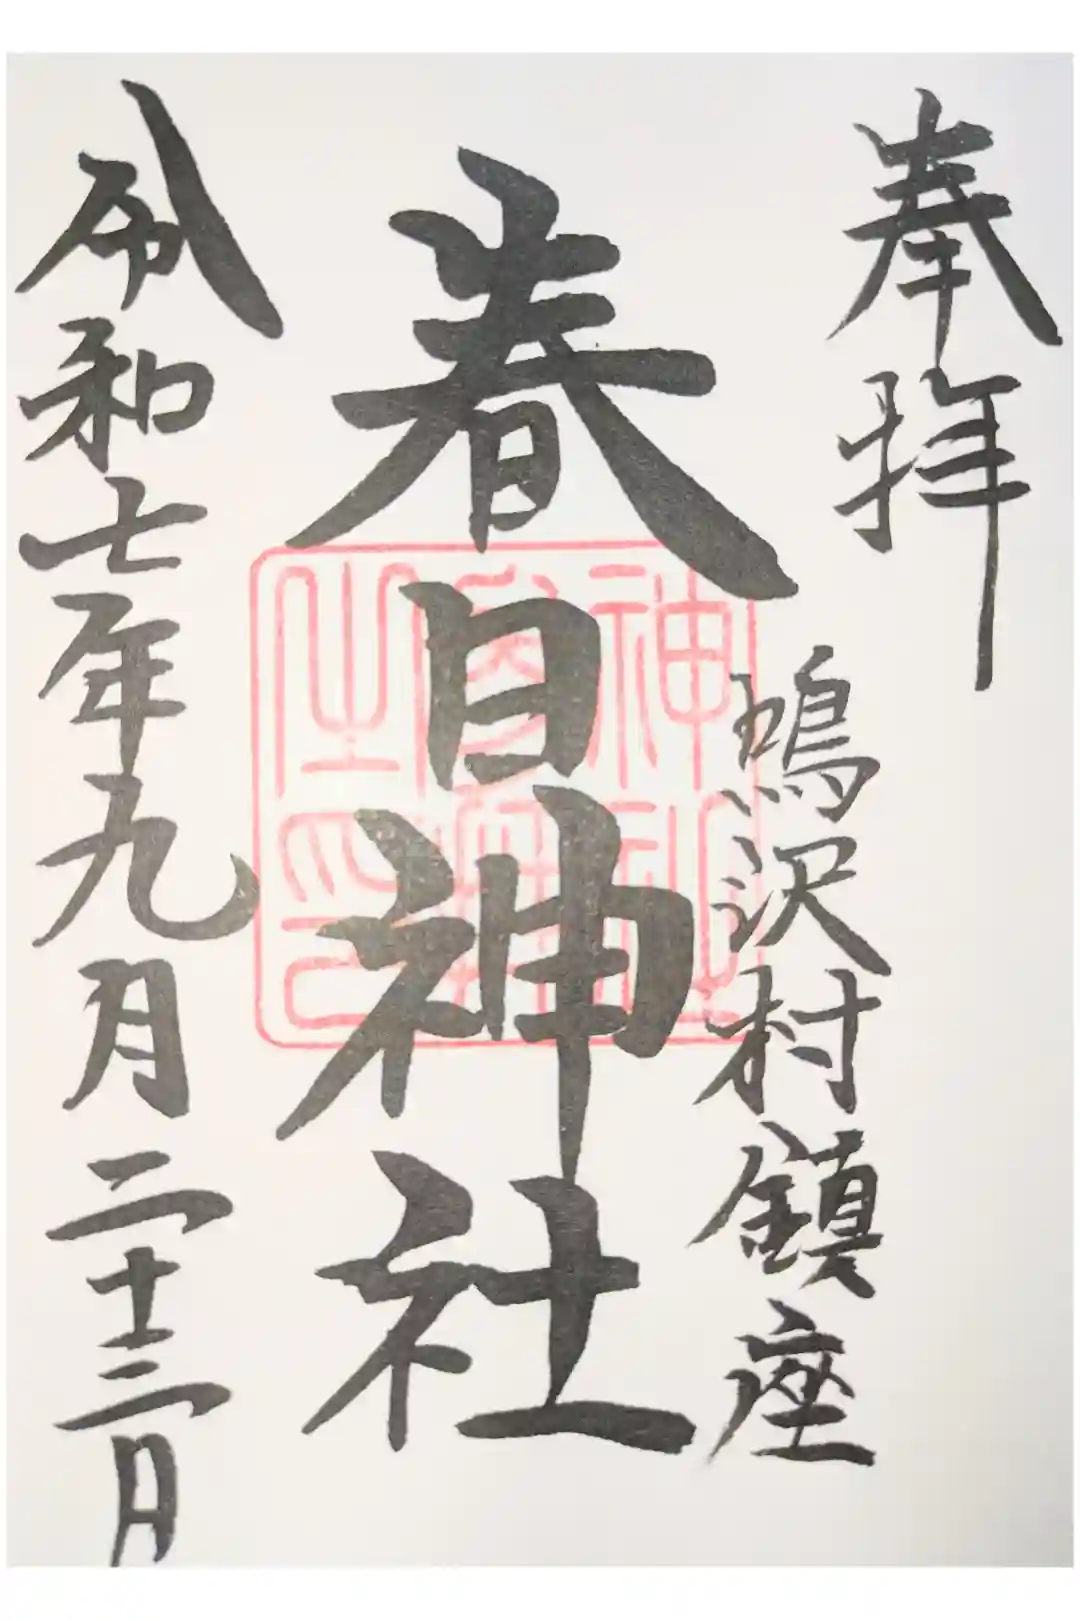 奉拝
鳴沢村鎮座
春日神社
令和七年九月二十三日
神社
之印